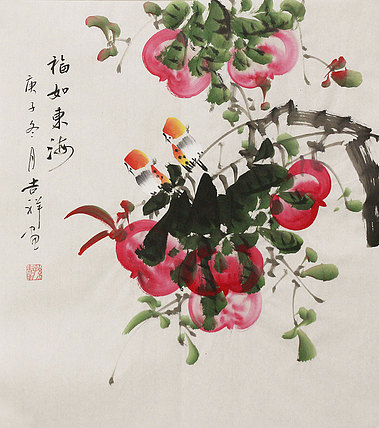 福如東海
庚子冬月吉祥画